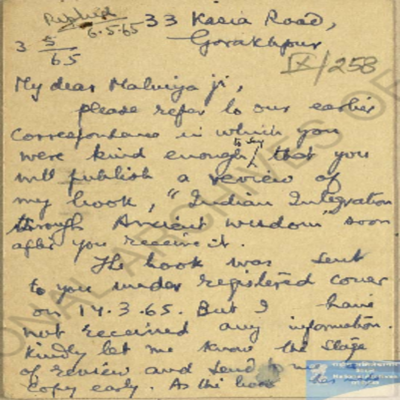 Replied
6.5.65
33 Kasia Road,
Gorakhpur
3 5/65
IX/258
My dear Malviya ji,
please refer to our earlier
correspondence in which you
were kind enough to say that you
will publish a review of
my book, "Indian Integration
through Ancient wisdom" soon
after you receive it.
The book was sent
to you under registered cover
on 17.3.65. But I have
not received any information.
Kindly let me know the stage
of review and send me
copy early. As the book has